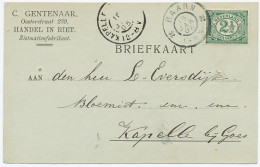 C. GENTENAAR,
Oosterstraat 239,
HANDEL IN RIET.
Rietmattenfabrikant.
KAPELLE
BAARN
2½
BRIEFKAART
AAN den heer L. Eversdijk
Bloemist, enz. enz.
Kapelle bij Goes